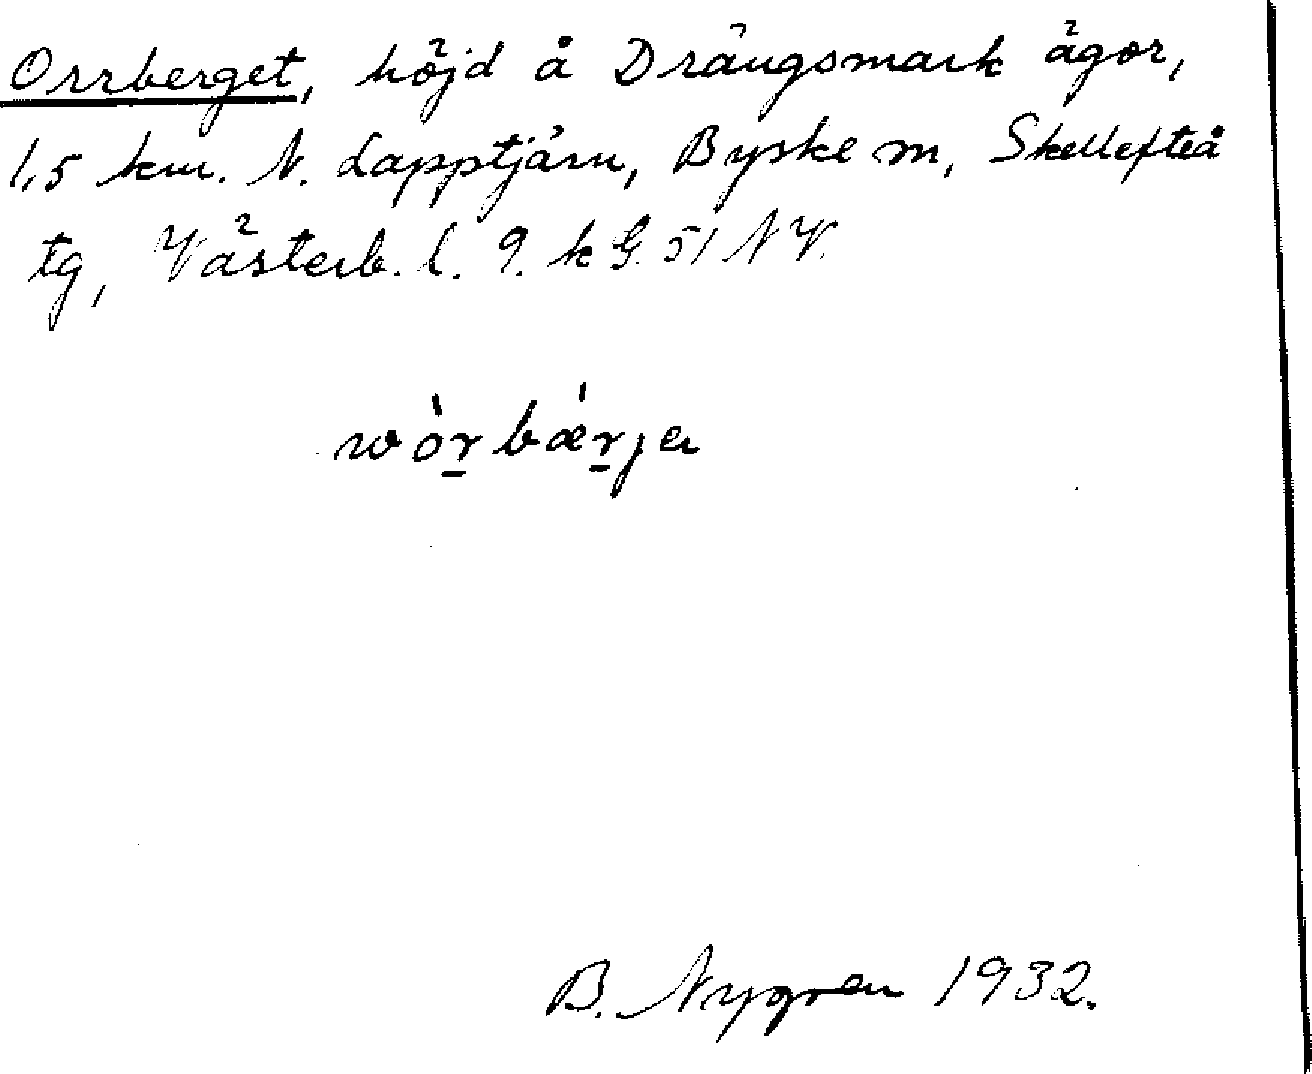 Orrberget, höjd å Drängsmark ägor,
1,5 km. N. Lapptjärn, Byske sn, Skellefteå
tg, Västerb. l. 9. k G. 51 NV.
wòrbǽrja
B. Nygren 1932.